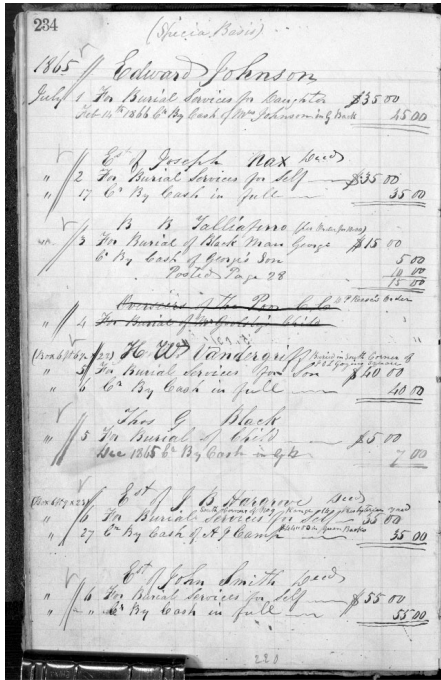 234
(Specia Basis)
1865 Edward Johnson
July 1 For Burial Services for Daughter $35 00
Feb 14th 1866 Cr By Cash of Mrs Johnson in G Back 45 00
Est of Joseph Nax Decd
" 2 For Burial Services for Self $35 00
" 17 Cr By Cash in full 35 00
B B Talliaferro
" 3 For Burial of Black Man George $15 00
Cr By Cash of George's Son 5 00
Posted Page 28 10 00
15 00
Overseers of The Poor
" 4 For Burial of Child
H W Vandergriff Buried in South Corner of
" 5 For Buriale Services for Son $40 00
" 6 Cr By Cash in full 40 00
Thos G Black
" 5 For Burial of Child $5 00
Dec 1865 Cr By Cash in 7 00
Est of J B Hargrove Decd
" 6 For Buriale Services for Self 35 00
" 27 Cr By Cash of A J Camp 35 00
Est of John Smith Decd
" 6 For Burial Services for Self $55 00
" " Cr By Cash in full 55 00
220